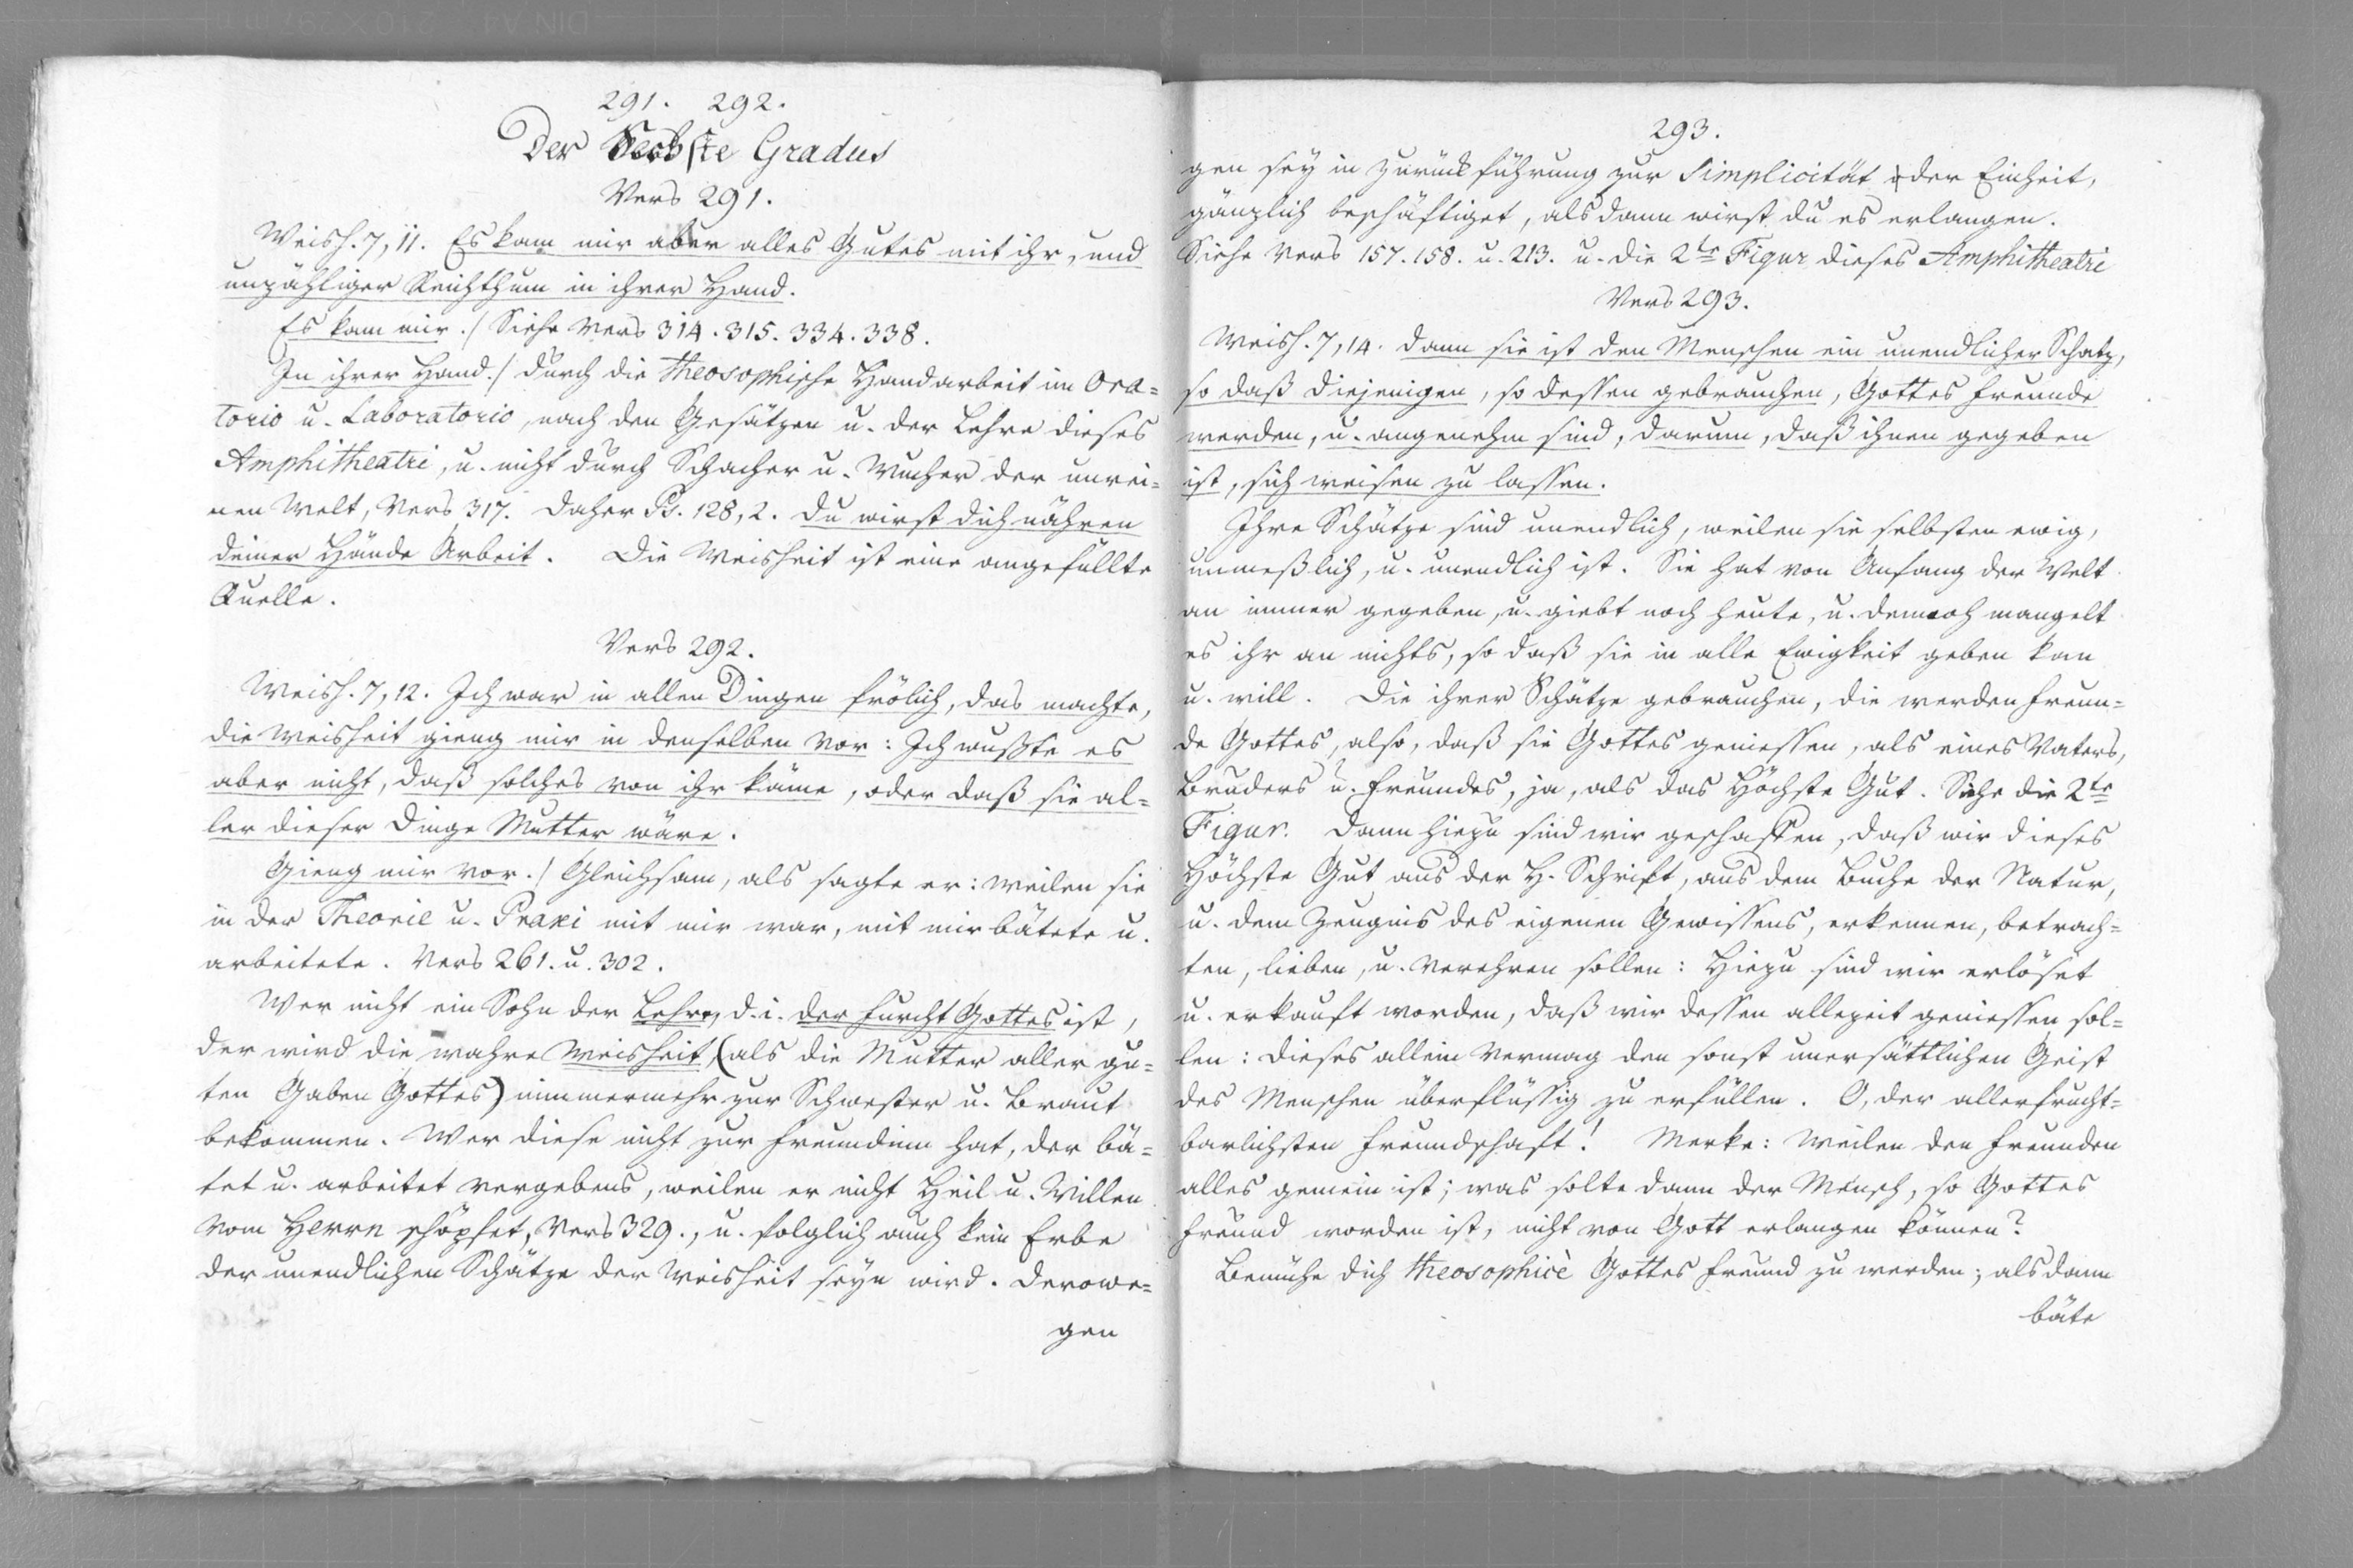 291. 292.
Der Sechste Gradus
Vers 291.
Weish. 7, 11. Es kam mir aber alles Gutes mit ihr, und
unzähliger Reichthum in ihrer Hand.
Es kam mir./ Siehe Vers 314. 315. 334. 338.
In ihrer Hand./ durch die theosophische Handarbeit im Ora=
torio u. Laboratorio, nach den Gesätzen u. der Lehre dieses
Amphitheatri, u. nicht durch Schacher u. Wucher der unrei=
nen Welt, Vers 317. Daher Ps. 128, 2. du wirst dich nähren
deiner Hände Arbeit. Die Weisheit ist eine angefüllte
Quelle.
Vers 292.
Weish. 7, 12. Ich war in allen Dingen frölich, das machte,
die Weisheit gieng mir in denselben vor: Ich wußte es
aber nicht, daß solches von ihr käme, oder daß sie al=
ler dieser Dinge Mutter wäre.
Gieng mir vor./ Gleichsam, als sagte er: weilen sie
in der Theorie u. Praxi mit mir war, mit mir bätete u.
arbeitete. Vers 261. u. 302.
Wer nicht ein Sohn der Lehre, d. i. der Furcht Gottes ist,
der wird die wahre Weisheit, (als die Mutter aller gu=
ten Gaben Gottes) nimmermehr zur Schwester u. Braut
bekommen. Wer diese nicht zur Freundinn hat, der bä=
tet u. arbeitet vergebens, weilen er nicht Heil u. Willen
vom Herrn schöpfet, Vers 329., u. folglich auch kein Erbe
der unendlichen Schätze der Weisheit seyn wird. Derowe=
gen
293.
gen sey in Zurückführung zur Simplicität oder Einheit,
gänzlich beschäftiget, alsdann wirst du es erlangen.
Siehe Vers 157. 158. u. 213. u. die 2te Figur dieses Amphitheatri
Vers 293.
Weish. 7, 14. dann sie ist den Menschen ein unendlicher Schatz,
so daß diejenigen, so dessen gebrauchen, Gottes Freunde
werden, u. angenehm sind, darum, daß ihnen gegeben
ist, sich weisen zu lassen.
Ihre Schätze sind unendlich, weilen sie selbsten ewig,
unmeßlich, u. unendlich ist. Sie hat von Anfang der Welt
an immer gegeben, u. giebt noch heute, u. dennoch mangelt
es ihr an nichts, so daß sie in alle Ewigkeit geben kan
u. will. Die ihrer Schätze gebrauchen, die werden Freun=
de Gottes, also, daß sie Gottes geniessen, als eines Vaters,
Bruders u. Freundes, ja, als das Höchste Gut. Siehe die 2te
Figur. Dann hiezu sind wir geschaffen, daß wir dieses
Höchste Gut aus der H. Schrift, aus dem Buche der Natur,
u. dem Zeugnis des eigenen Gewissens, erkennen, betrach=
ten, lieben, u. verehren sollen: Hiezu sind wir erlöset
u. erkauft worden, daß wir dessen allezeit geniessen sol=
len: dieses allein vermag den sonst unersättlichen Geist
des Menschen überflüssig zu erfüllen. O, der allerfrucht=
barlichsten Freundschaft! Merke: Weilen den Freunden
alles gemein ist; was solte dann der Mensch, so Gottes
Freund worden ist, nicht von Gott erlangen können?
Bemühe dich theosophicè Gottes Freund zu werden; alsdann
bäte